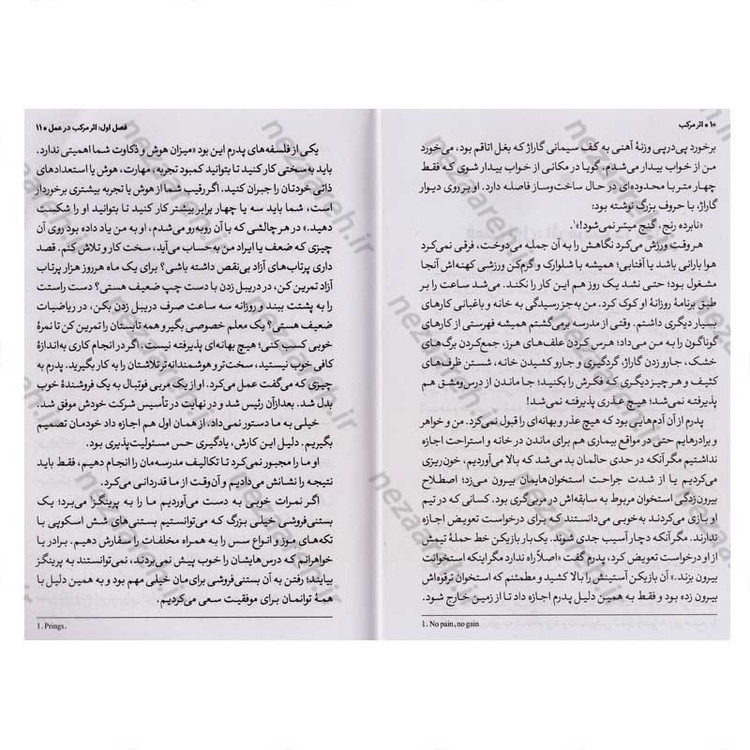 ۱۰ ● اثر مرکب
برخورد پی‌درپی وزنهٔ آهنی به کف سیمانی گاراژ که بغل اتاقم بود، می‌خورد
من از خواب بیدار می‌شدم. گویا در مکانی از خواب بیدار شوی که فقط
چهار متر با محدوده‌ای در حال ساخت‌وساز فاصله دارد. او بر روی دیوار
گاراژ، با حروف بزرگ نوشته بود:
«نابرده رنج، گنج میسّر نمی‌شود!»¹.
هر وقت ورزش می‌کرد نگاهش را به آن جمله می‌دوخت، فرقی نمی‌کرد
هوا بارانی باشد یا آفتابی؛ همیشه با شلوارک و گرم‌کن ورزشی کهنه‌اش آنجا
مشغول بود؛ حتی نشد یک روز هم این کار را نکند. می‌شد ساعت را بر
طبق برنامهٔ روزانهٔ او کوک کرد. من به‌جز رسیدگی به خانه و باغبانی کارهای
بسیار دیگری داشتم. وقتی از مدرسه برمی‌گشتم همیشه فهرستی از کارهای
گوناگون را به من می‌داد؛ هرس کردن علف‌های هرز، جمع‌کردن برگ‌های
خشک، جارو زدن گاراژ، گردگیری و جارو کشیدن خانه، شستن ظرف‌های
کثیف و هر چیز دیگری که فکرش را بکنید؛ جا ماندن از درس‌ومشق هم
پذیرفته نمی‌شد؛ هیچ عذری پذیرفته نمی‌شد!
پدرم از آن آدم‌هایی بود که هیچ عذر و بهانه‌ای را قبول نمی‌کرد. من و خواهر
و برادرهایم حتی در مواقع بیماری هم برای ماندن در خانه و استراحت اجازه
نداشتیم مگر آنکه در حدی حالمان بد می‌شد که بالا می‌آوردیم، خون‌ریزی
می‌کردیم یا از شدت جراحت استخوان‌هایمان بیرون می‌زد؛ اصطلاح
بیرون‌زدگی استخوان مربوط به سابقه‌اش در مربی‌گری بود. کسانی که در تیم
او بازی می‌کردند به‌خوبی می‌دانستند که برای درخواست تعویض اجازه
ندارند. مگر آنکه دچار آسیب جدی شوند. یک‌بار بازیکن خط حملهٔ تیمش
از او درخواست تعویض کرد، پدرم گفت «اصلاً راه ندارد مگر اینکه استخوانت
بیرون بزند.» آن بازیکن آستینش را بالا کشید و مطمئنم که استخوان ترقوه‌اش
بیرون زده بود و فقط به همین دلیل پدرم اجازه داد تا از زمین خارج شود.
1. No pain, no gain
فصل اول: اثر مرکب در عمل ● ۱۱
یکی از فلسفه‌های پدرم این بود «میزان هوش و ذکاوت شما اهمیتی ندارد.
باید به‌سختی کار کنید تا بتوانید کمبود تجربه، مهارت، هوش یا استعدادهای
ذاتی خودتان را جبران کنید. اگر رقیب شما از هوش یا تجربه بیشتری برخوردار
است، شما باید سه یا چهار برابر بیشتر کار کنید تا بتوانید او را شکست
دهید.» در هر چالشی که با آن روبه‌رو می‌شدم، او به من یاد داده بود روی آن
چیزی که ضعف یا ایراد من به‌حساب می‌آید، سخت کار و تلاش کنم. قصد
داری پرتاب‌های آزاد بی‌نقص داشته باشی؟ برای یک ماه هر روز هزار پرتاب
آزاد تمرین کن، در دریبل زدن با دست چپ ضعیف هستی؟ دست راستت
را به پشتت ببند و روزانه سه ساعت صرف دریبل زدن بکن، در ریاضیات
ضعیف هستی؟ یک معلم خصوصی بگیر و همه تابستان را تمرین کن تا نمرهٔ
خوبی کسب کنی؛ هیچ بهانه‌ای پذیرفته نیست. اگر در انجام کاری به‌اندازهٔ
کافی خوب نیستید، سخت‌تر و هوشمندانه‌تر تلاشتان را به کار بگیرید. پدرم به
چیزی که می‌گفت عمل می‌کرد. او از یک مربی فوتبال به یک فروشندهٔ خوب
بدل شد. بعدازآن رئیس شد و در نهایت در تأسیس شرکت خودش موفق شد.
خیلی به ما دستور نمی‌داد، از همان اول هم اجازه داد خودمان تصمیم
بگیریم. دلیل این کارش، یادگیری حس مسئولیت‌پذیری بود.
او ما را مجبور نمی‌کرد تا تکالیف مدرسه‌مان را انجام دهیم، فقط باید
نتیجه را نشانش می‌دادیم و آن وقت از ما قدردانی می‌کرد.
اگر نمرات خوبی به دست می‌آوردیم ما را به پرینگز¹ می‌برد؛ یک
بستنی‌فروشی خیلی بزرگ که می‌توانستیم بستنی‌های شش اسکوپی با
تکه‌های موز و انواع سس را به همراه مخلفات را سفارش دهیم. برادر یا
خواهرانم که درس‌هایشان را خوب پیش نمی‌بردند، نمی‌توانستند به پرینگز
بیایند؛ رفتن به آن بستنی‌فروشی برای‌مان خیلی مهم بود و به همین دلیل با
همهٔ توانمان برای موفقیت سعی می‌کردیم.
1. Prings.
nezaareh.ir